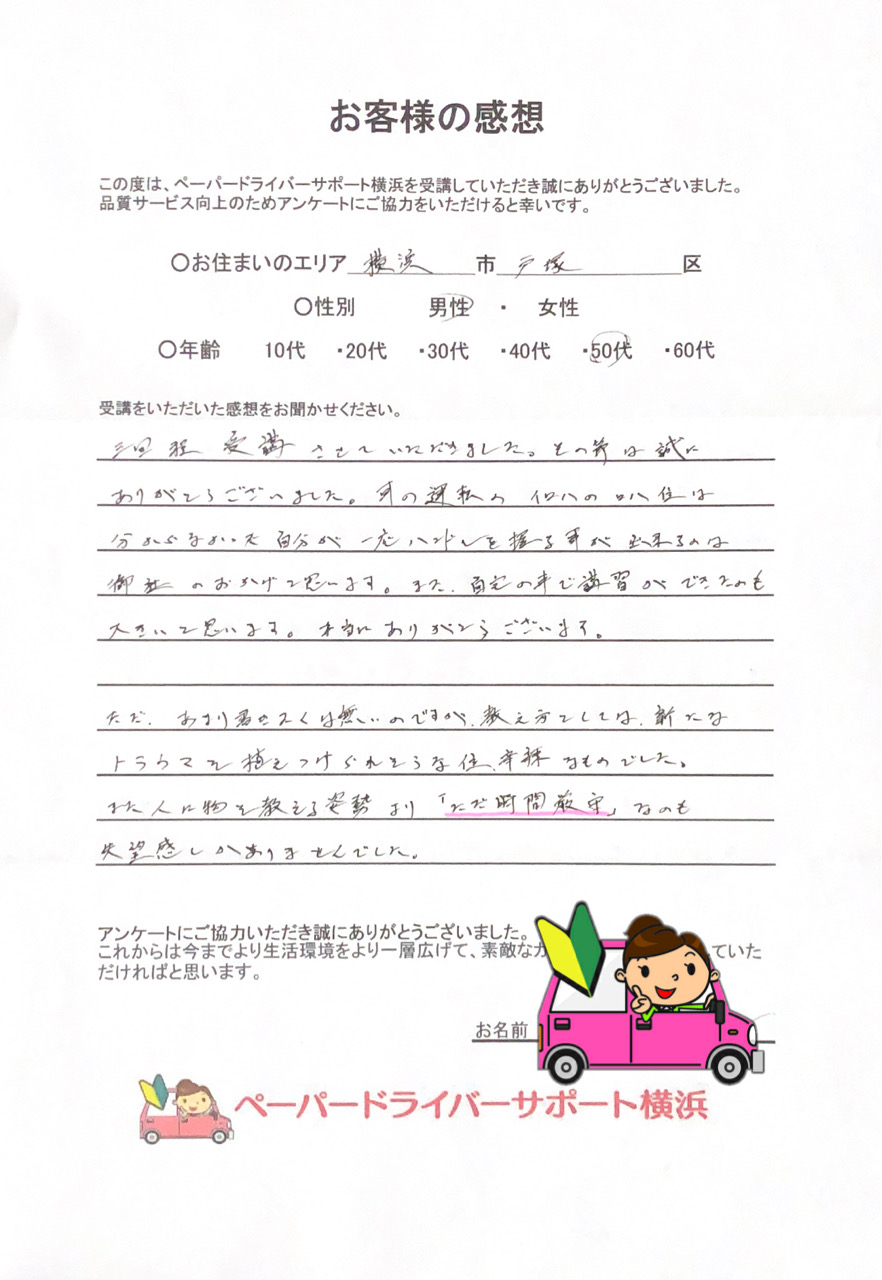 お客様の感想
この度は、ペーパードライバーサポート横浜を受講していただき誠にありがとうございました。
品質サービス向上のためアンケートにご協力をいただけると幸いです。
〇お住まいのエリア 横浜 市 戸塚 区
〇性別 男性 ・ 女性
〇年齢 10代 ・20代 ・30代 ・40代 ・50代 ・60代
受講をいただいた感想をお聞かせください。
三回程 受講 させていただきました。その節は誠に
ありがとうございました。車の運転の イロハのロハ位は
分からなかった 自分が 一応ハンドルを握る事が 出来るのは
御社 のおかげと思います。また、自宅の車で講習ができたのも
大きいと思います。本当にありがとうございます。
ただ、あまり書きたくは無いのですが、教え方としては、新たな
トラウマを植えつけられそうな位、辛辣なものでした。
また人に物を教える姿勢より「ただ時間厳守」なのも
失望感しかありませんでした。
アンケートにご協力いただき誠にありがとうございました。
これからは今までより生活環境をより一層広げて、素敵なカ ていた
だければと思います。
お名前
ペーパードライバーサポート横浜